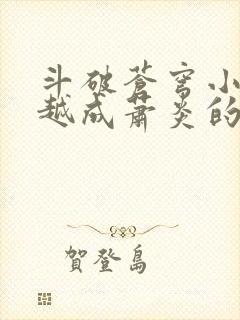 斗破苍穹小
越成萧炎的
賀登島